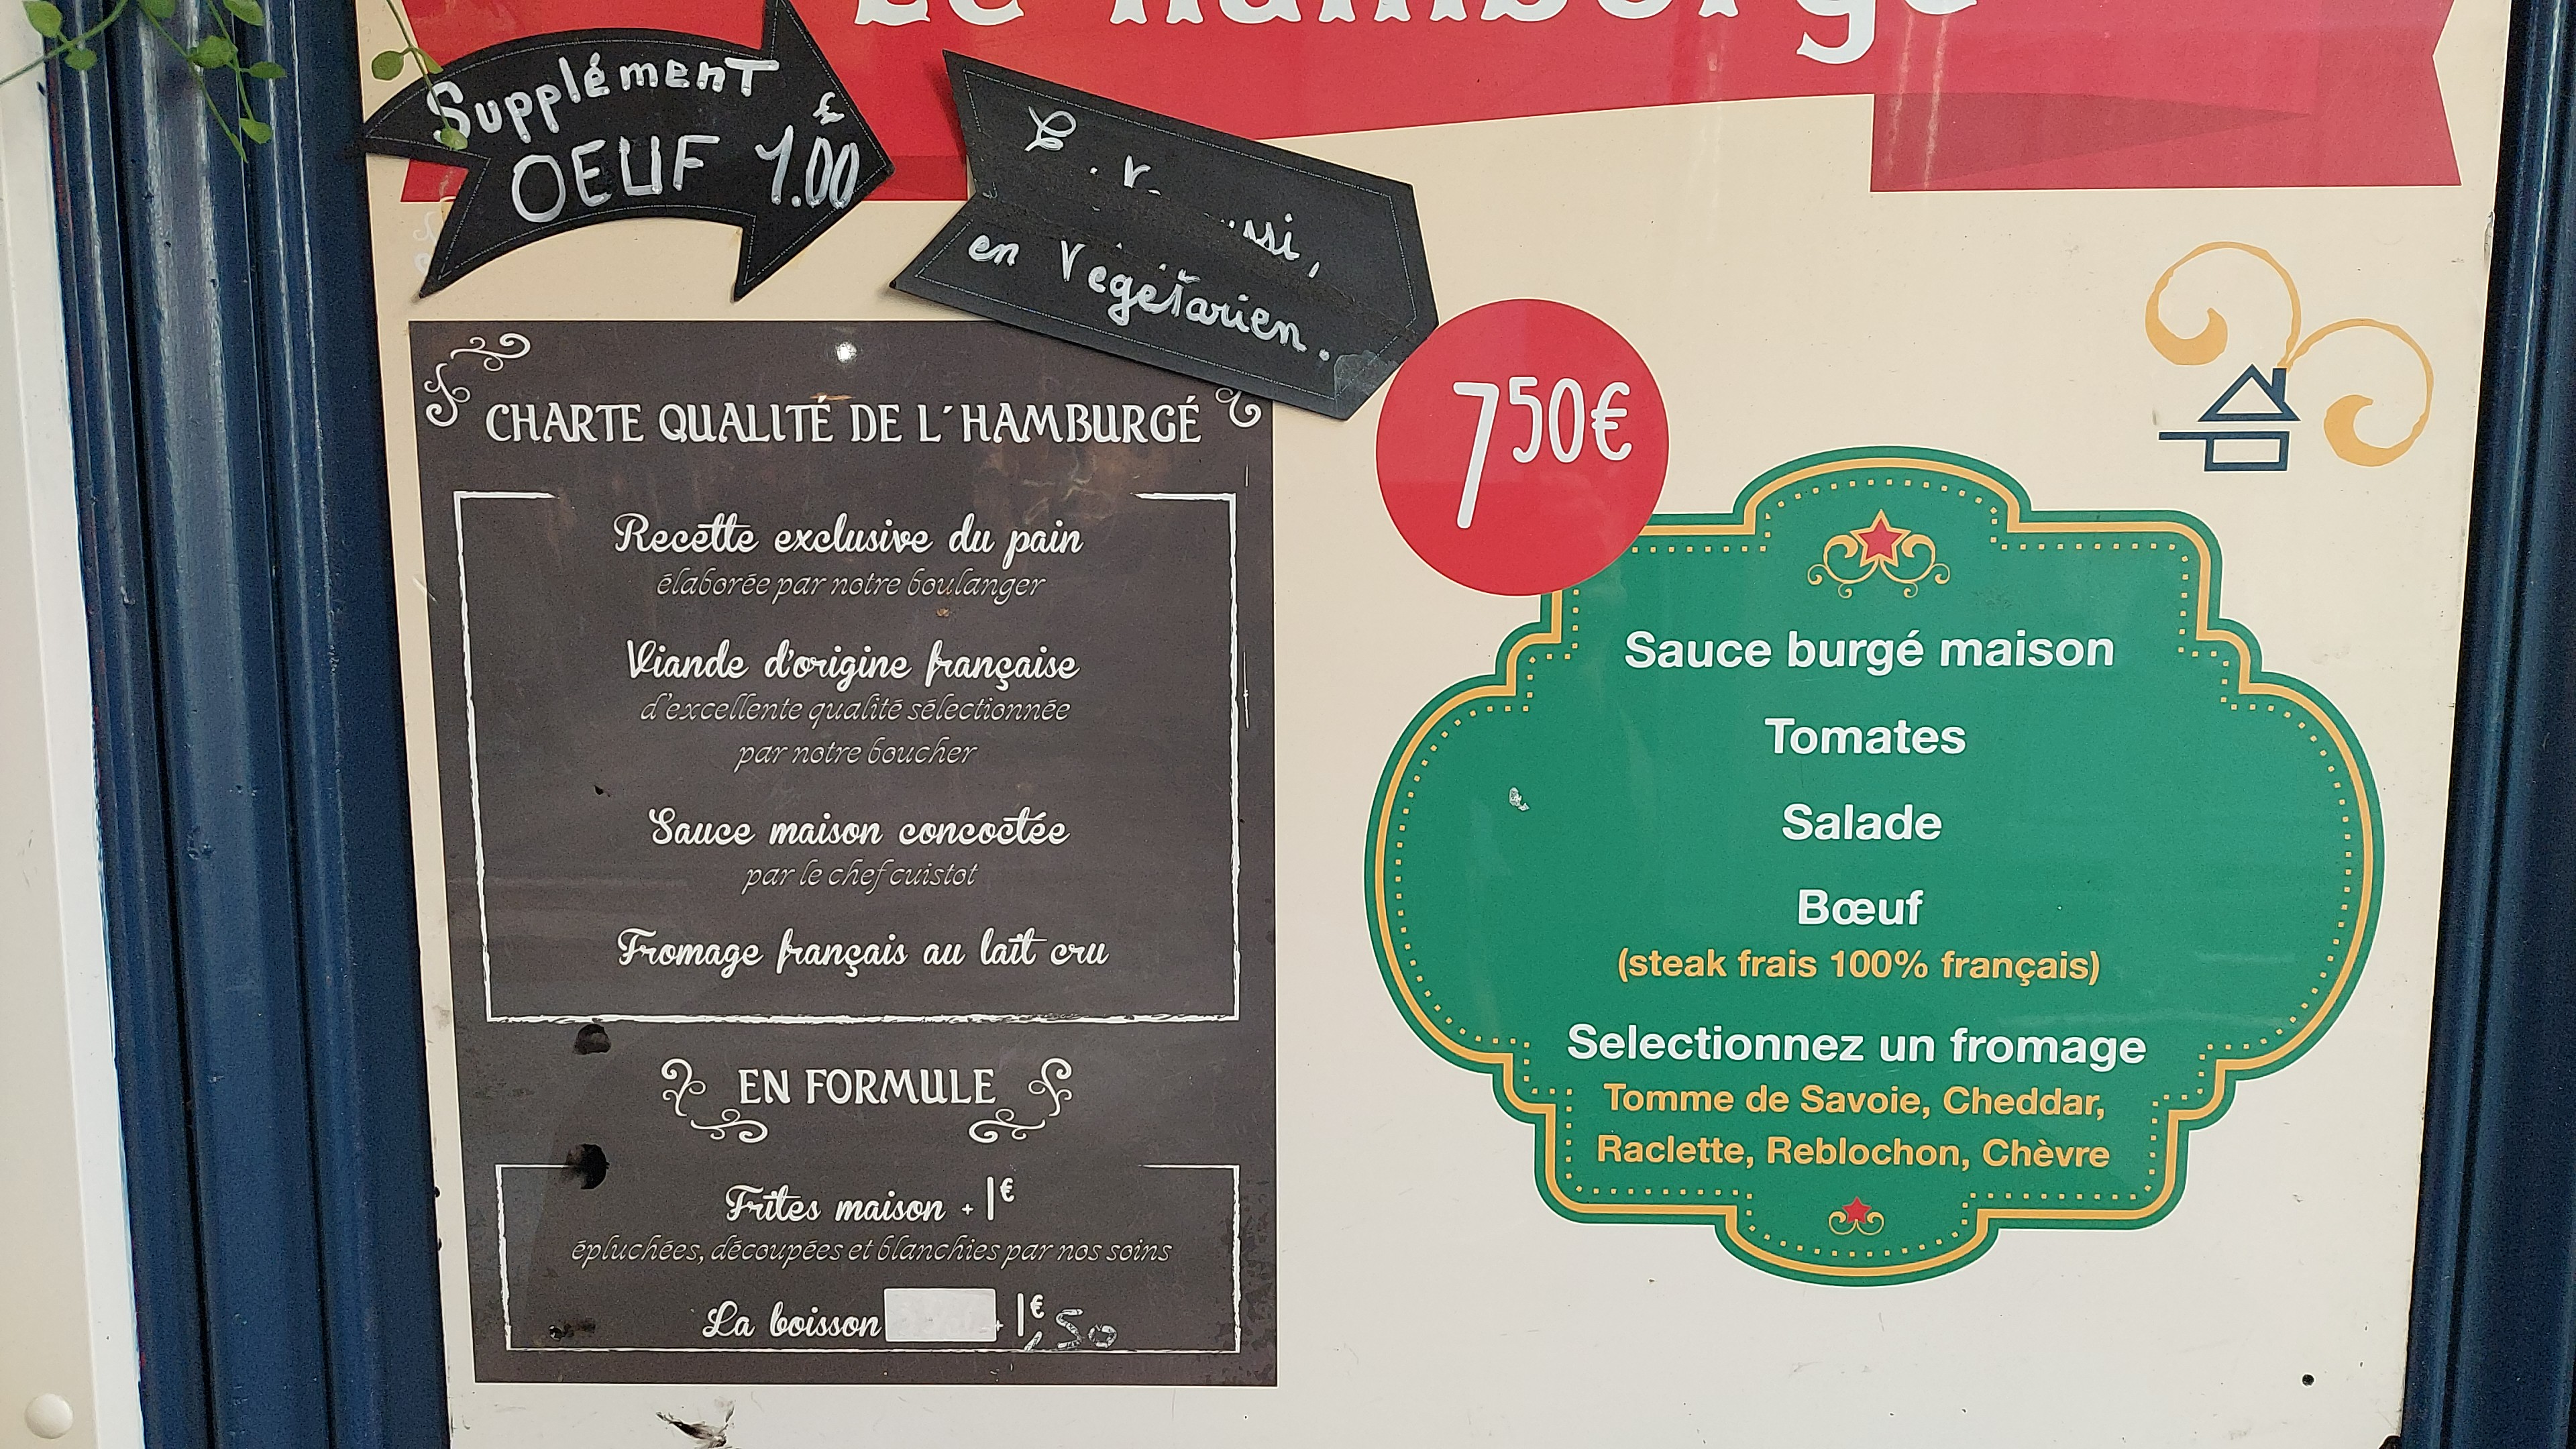 Le Hamburgé
Supplément
OEUF 1.00 €
en Végétarien.
CHARTE QUALITÉ DE L'HAMBURGÉ
Recette exclusive du pain
élaborée par notre boulanger
Viande d'origine française
d'excellente qualité sélectionnée
par notre boucher
Sauce maison concoctée
par le chef cuistot
Fromage français au lait cru
EN FORMULE
Frites maison + 1€
épluchées, découpées et blanchies par nos soins
La boisson + 1€,50
750€
Sauce burgé maison
Tomates
Salade
Bœuf
(steak frais 100% français)
Selectionnez un fromage
Tomme de Savoie, Cheddar,
Raclette, Reblochon, Chèvre